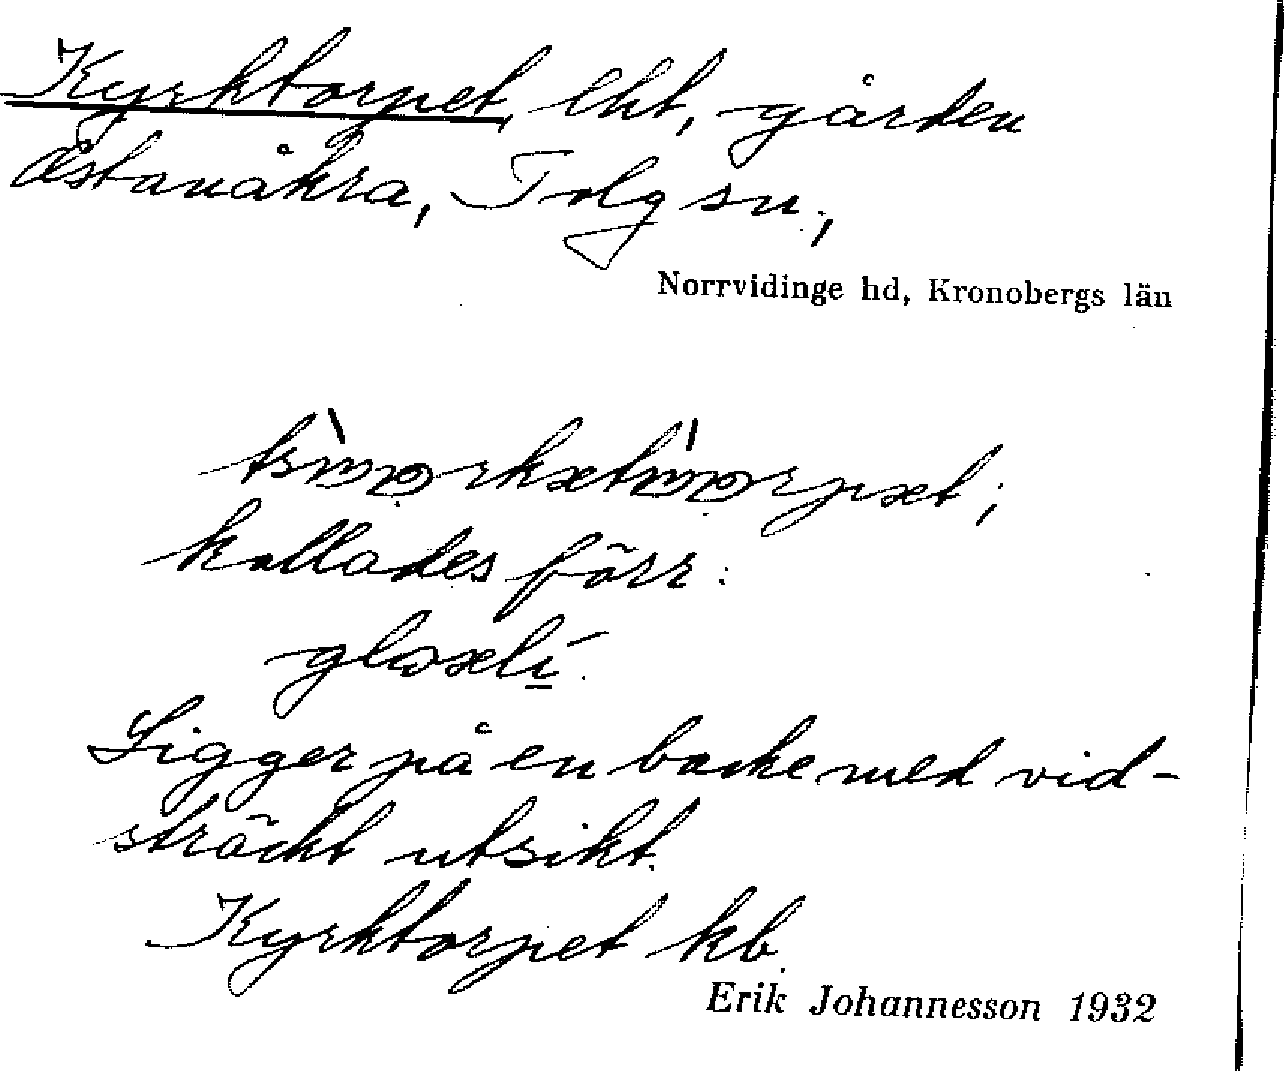 Kyrktorpet, lht, gården
Östanåkra, Tolg sn.,
Norrvidinge hd, Kronobergs län
kallades förr:
Ligger på en backe med vid-
sträckt utsikt.
Kyrktorpet kb.
Erik Johannesson 1932